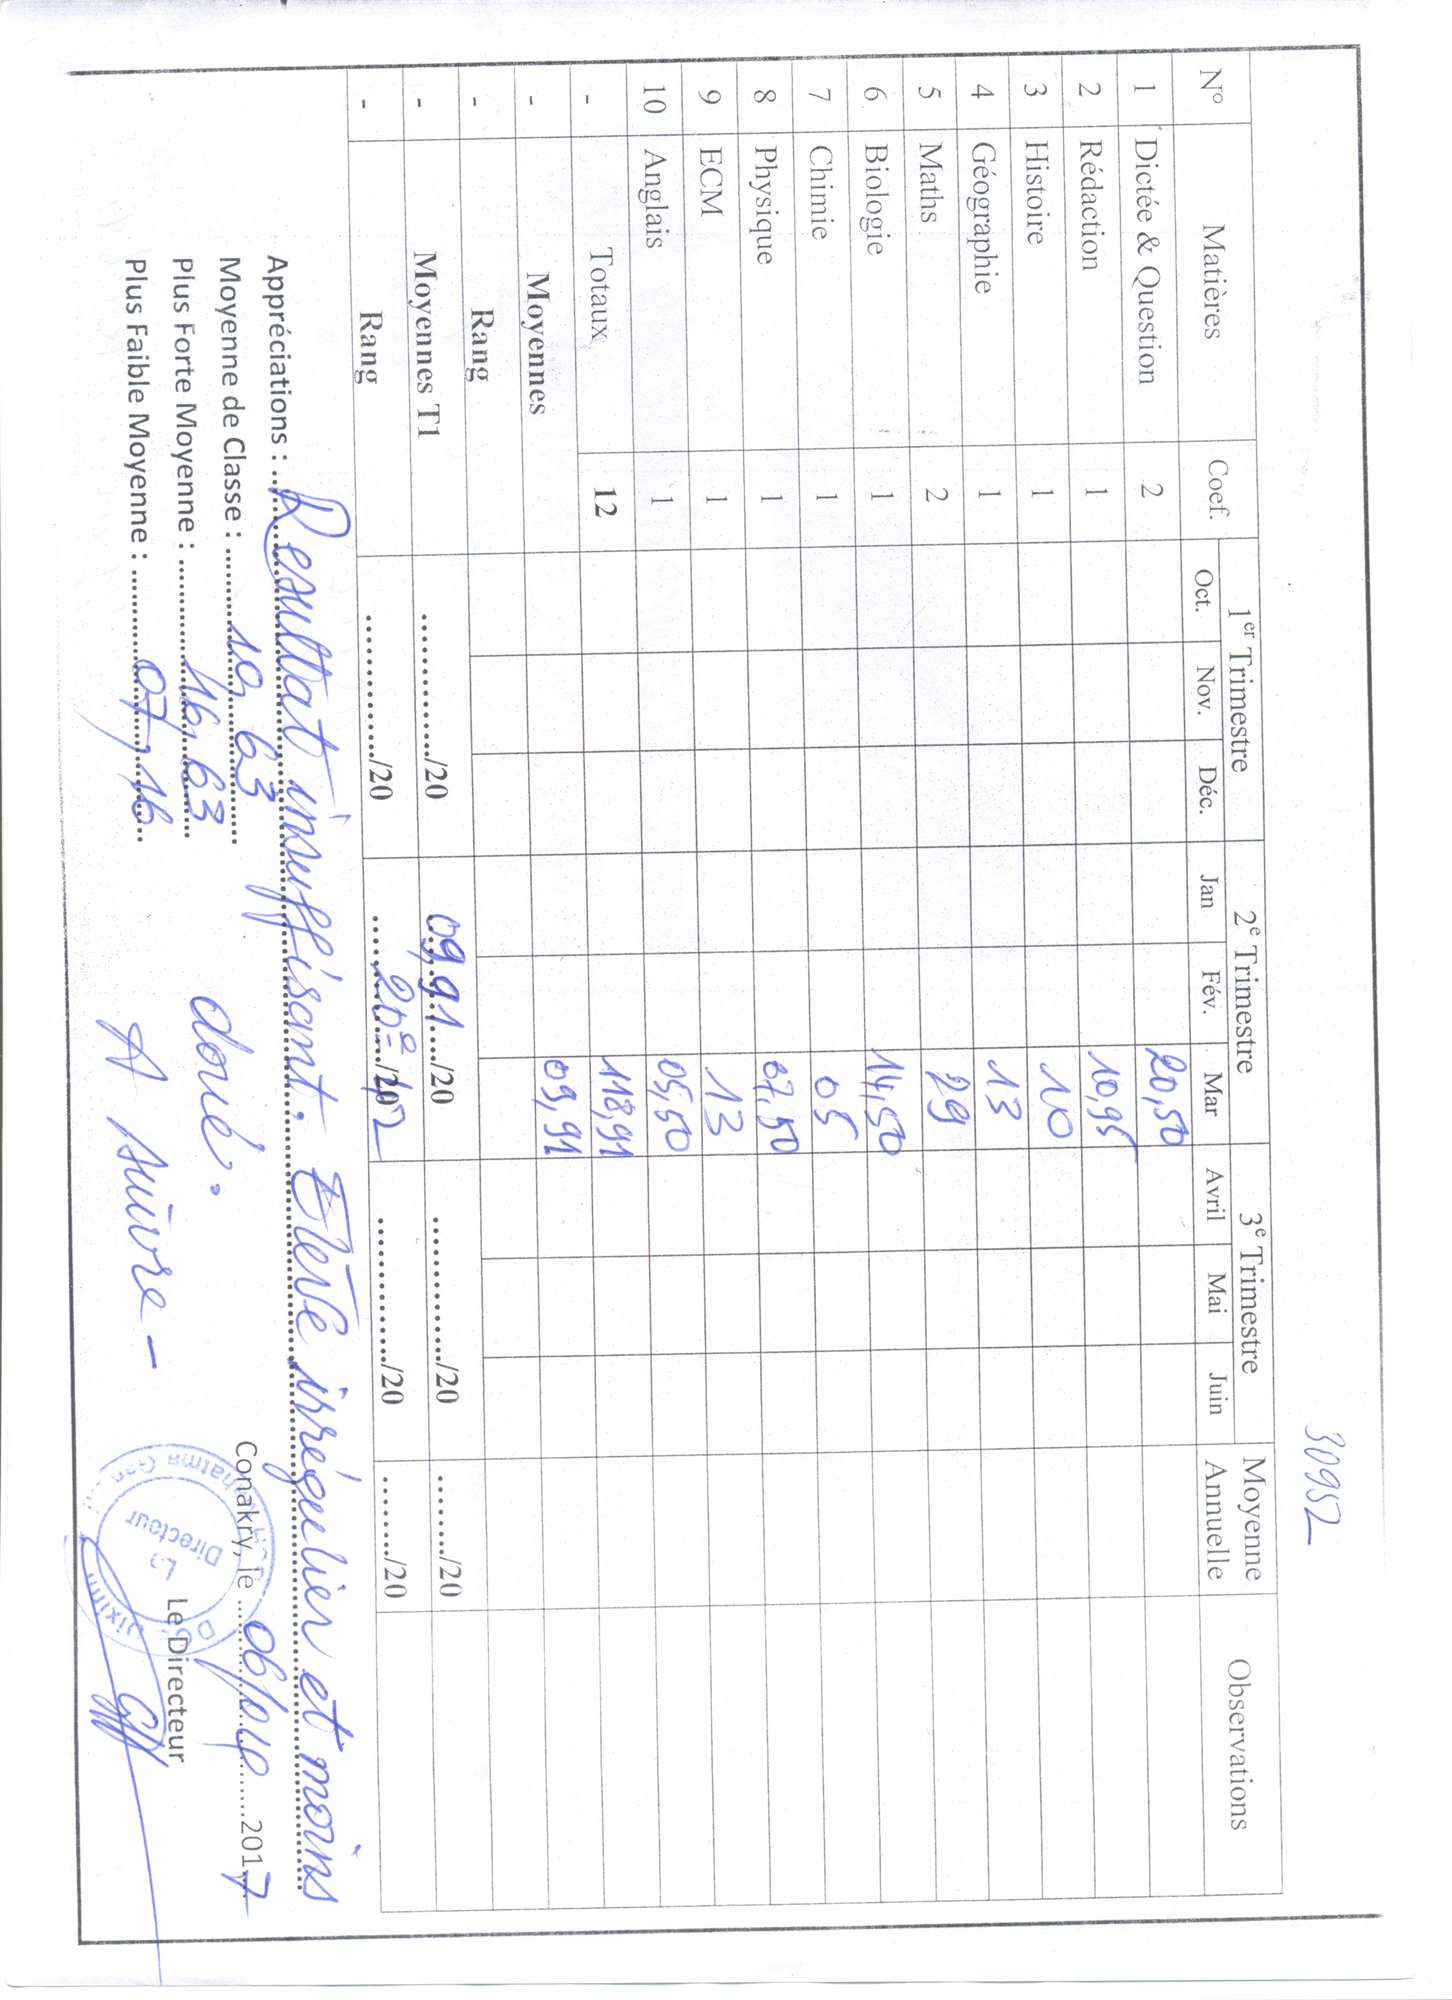 30952
N° Matières Coef. 1er Trimestre 2e Trimestre 3e Trimestre Moyenne Annuelle Observations
Oct. Nov. Déc. Jan Fév. Mar Avril Mai Juin
1 Dictée & Question 2 20,50
2 Rédaction 1 10,95
3 Histoire 1 10
4 Géographie 1 13
5 Maths 2 29
6 Biologie 1 14,50
7 Chimie 1 05
8 Physique 1 07,50
9 ECM 1 13
10 Anglais 1 05,50
- Totaux 12 118,91
- Moyennes 09,91
- Rang
- Moyennes T1 ............../20 09,91.../20 ............../20 ........./20
- Rang ............../20 20e/102 ............../20 ........./20
Appréciations : Resultat insuffisant. Elève irrégulier et moins
doué.
A suivre -
Moyenne de Classe : 10,63
Plus Forte Moyenne : 16,63
Plus Faible Moyenne : 07,16
Conakry, le 06/04/2017
Le Directeur
Directeur